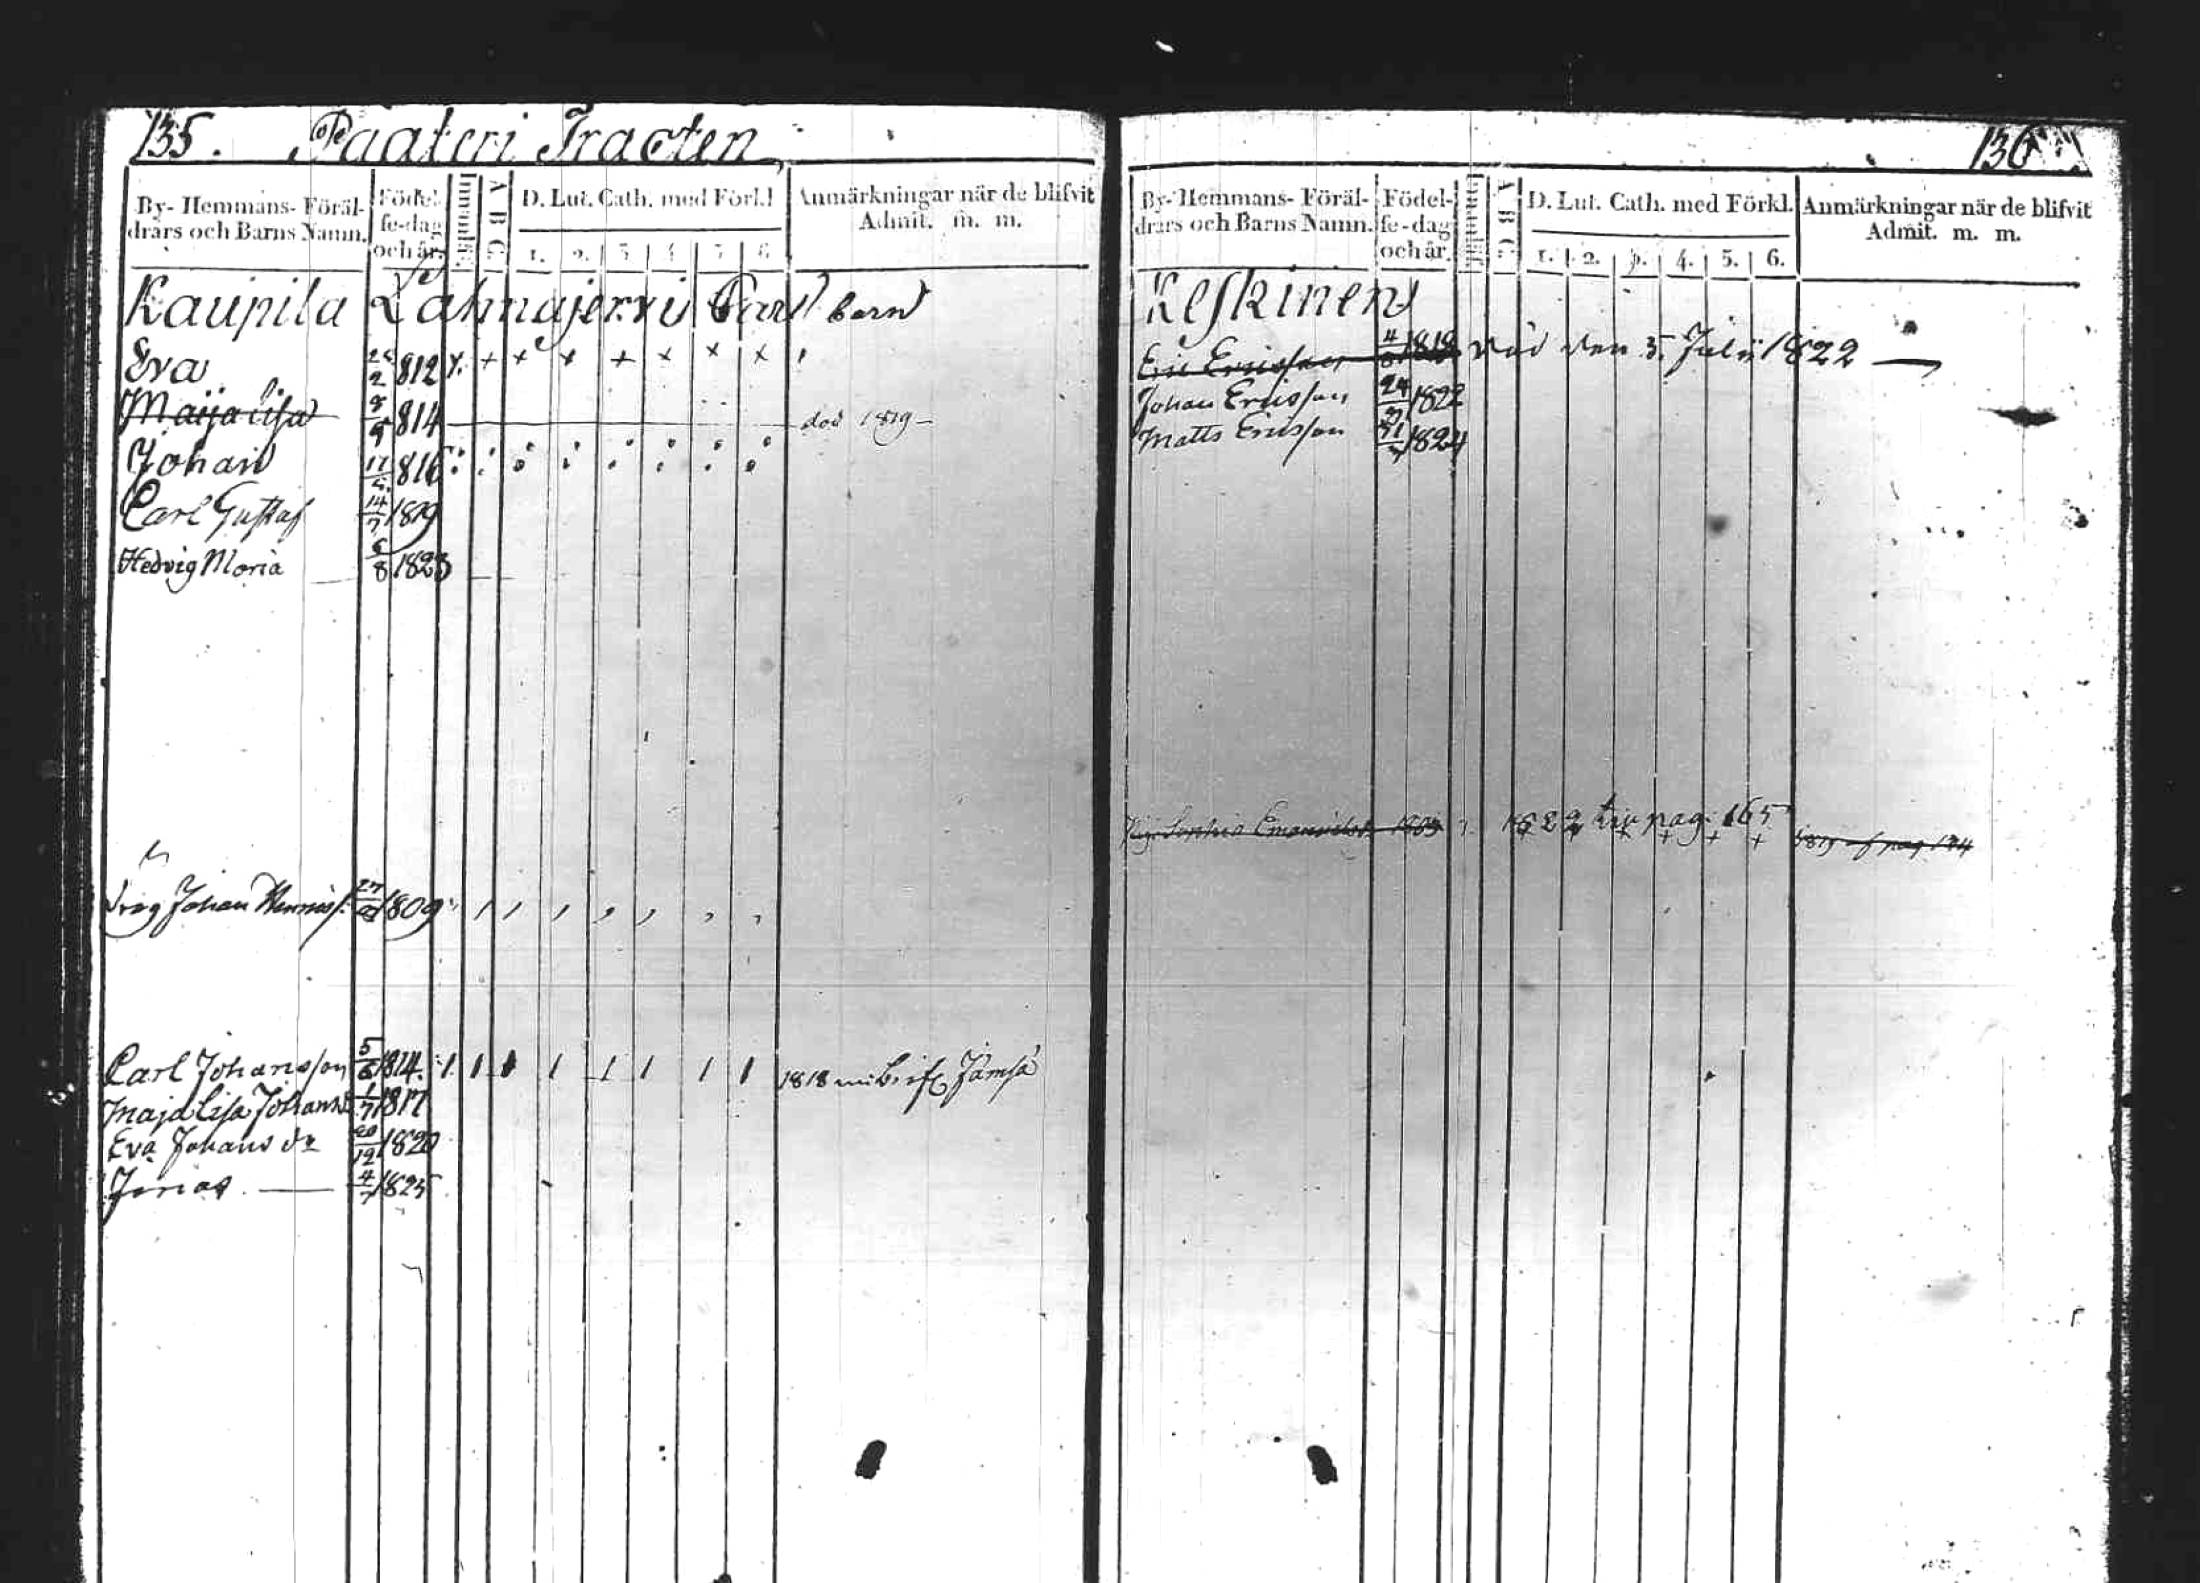 135. Paateri Tracten
By- Hemmans- Föräl-
drars och Barns Namn.
Födel-
se-dag
och år.
A B C
D. Lut. Cath. med Förkl.
1. 2. 3 4 5 6
Anmärkningar när de blifvit
Admit. m. m.
Kaupila Lahnajervi barn
Eva 2 1812 x + + x + x x x
Maija Lisa 9 1814 död 1819
Johan 17 1816
Carl Gustaf 14/7 1819
Hedvig Maria 6/8 1823
dreg Johan 27 1809
Carl Johansson 5/6 1814 1818 Jämsä
Maja Lisa Johans 1/7 1817
Eva Johans dr 20/12 1820
Jonas 4/7 1825
136
By- Hemmans- Föräl-
drars och Barns Namn.
Födel-
se-dag
och år.
A B C
D. Lut. Cath. med Förkl.
1. 2. 3. 4. 5. 6.
Anmärkningar när de blifvit
Admit. m. m.
Keskinen
Eric Ericsson 4 1818 död den 5. Julii 1822
Johan Ericsson 24 1822
Matts Ericsson 31 1824
Pig. Sophia 1803 1822 pag. 165 1819 af pag. 134